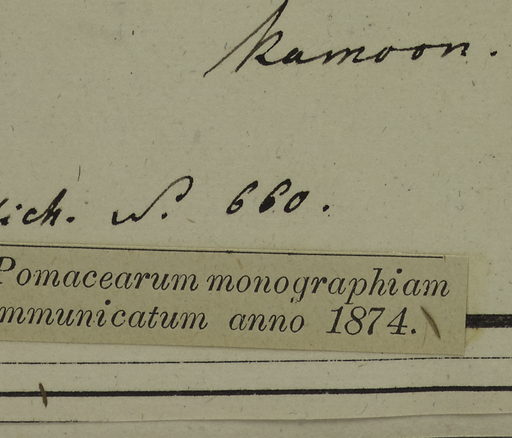 kamoon.
ich. N. 660.
Pomacearum monographiam
mmunicatum anno 1874.